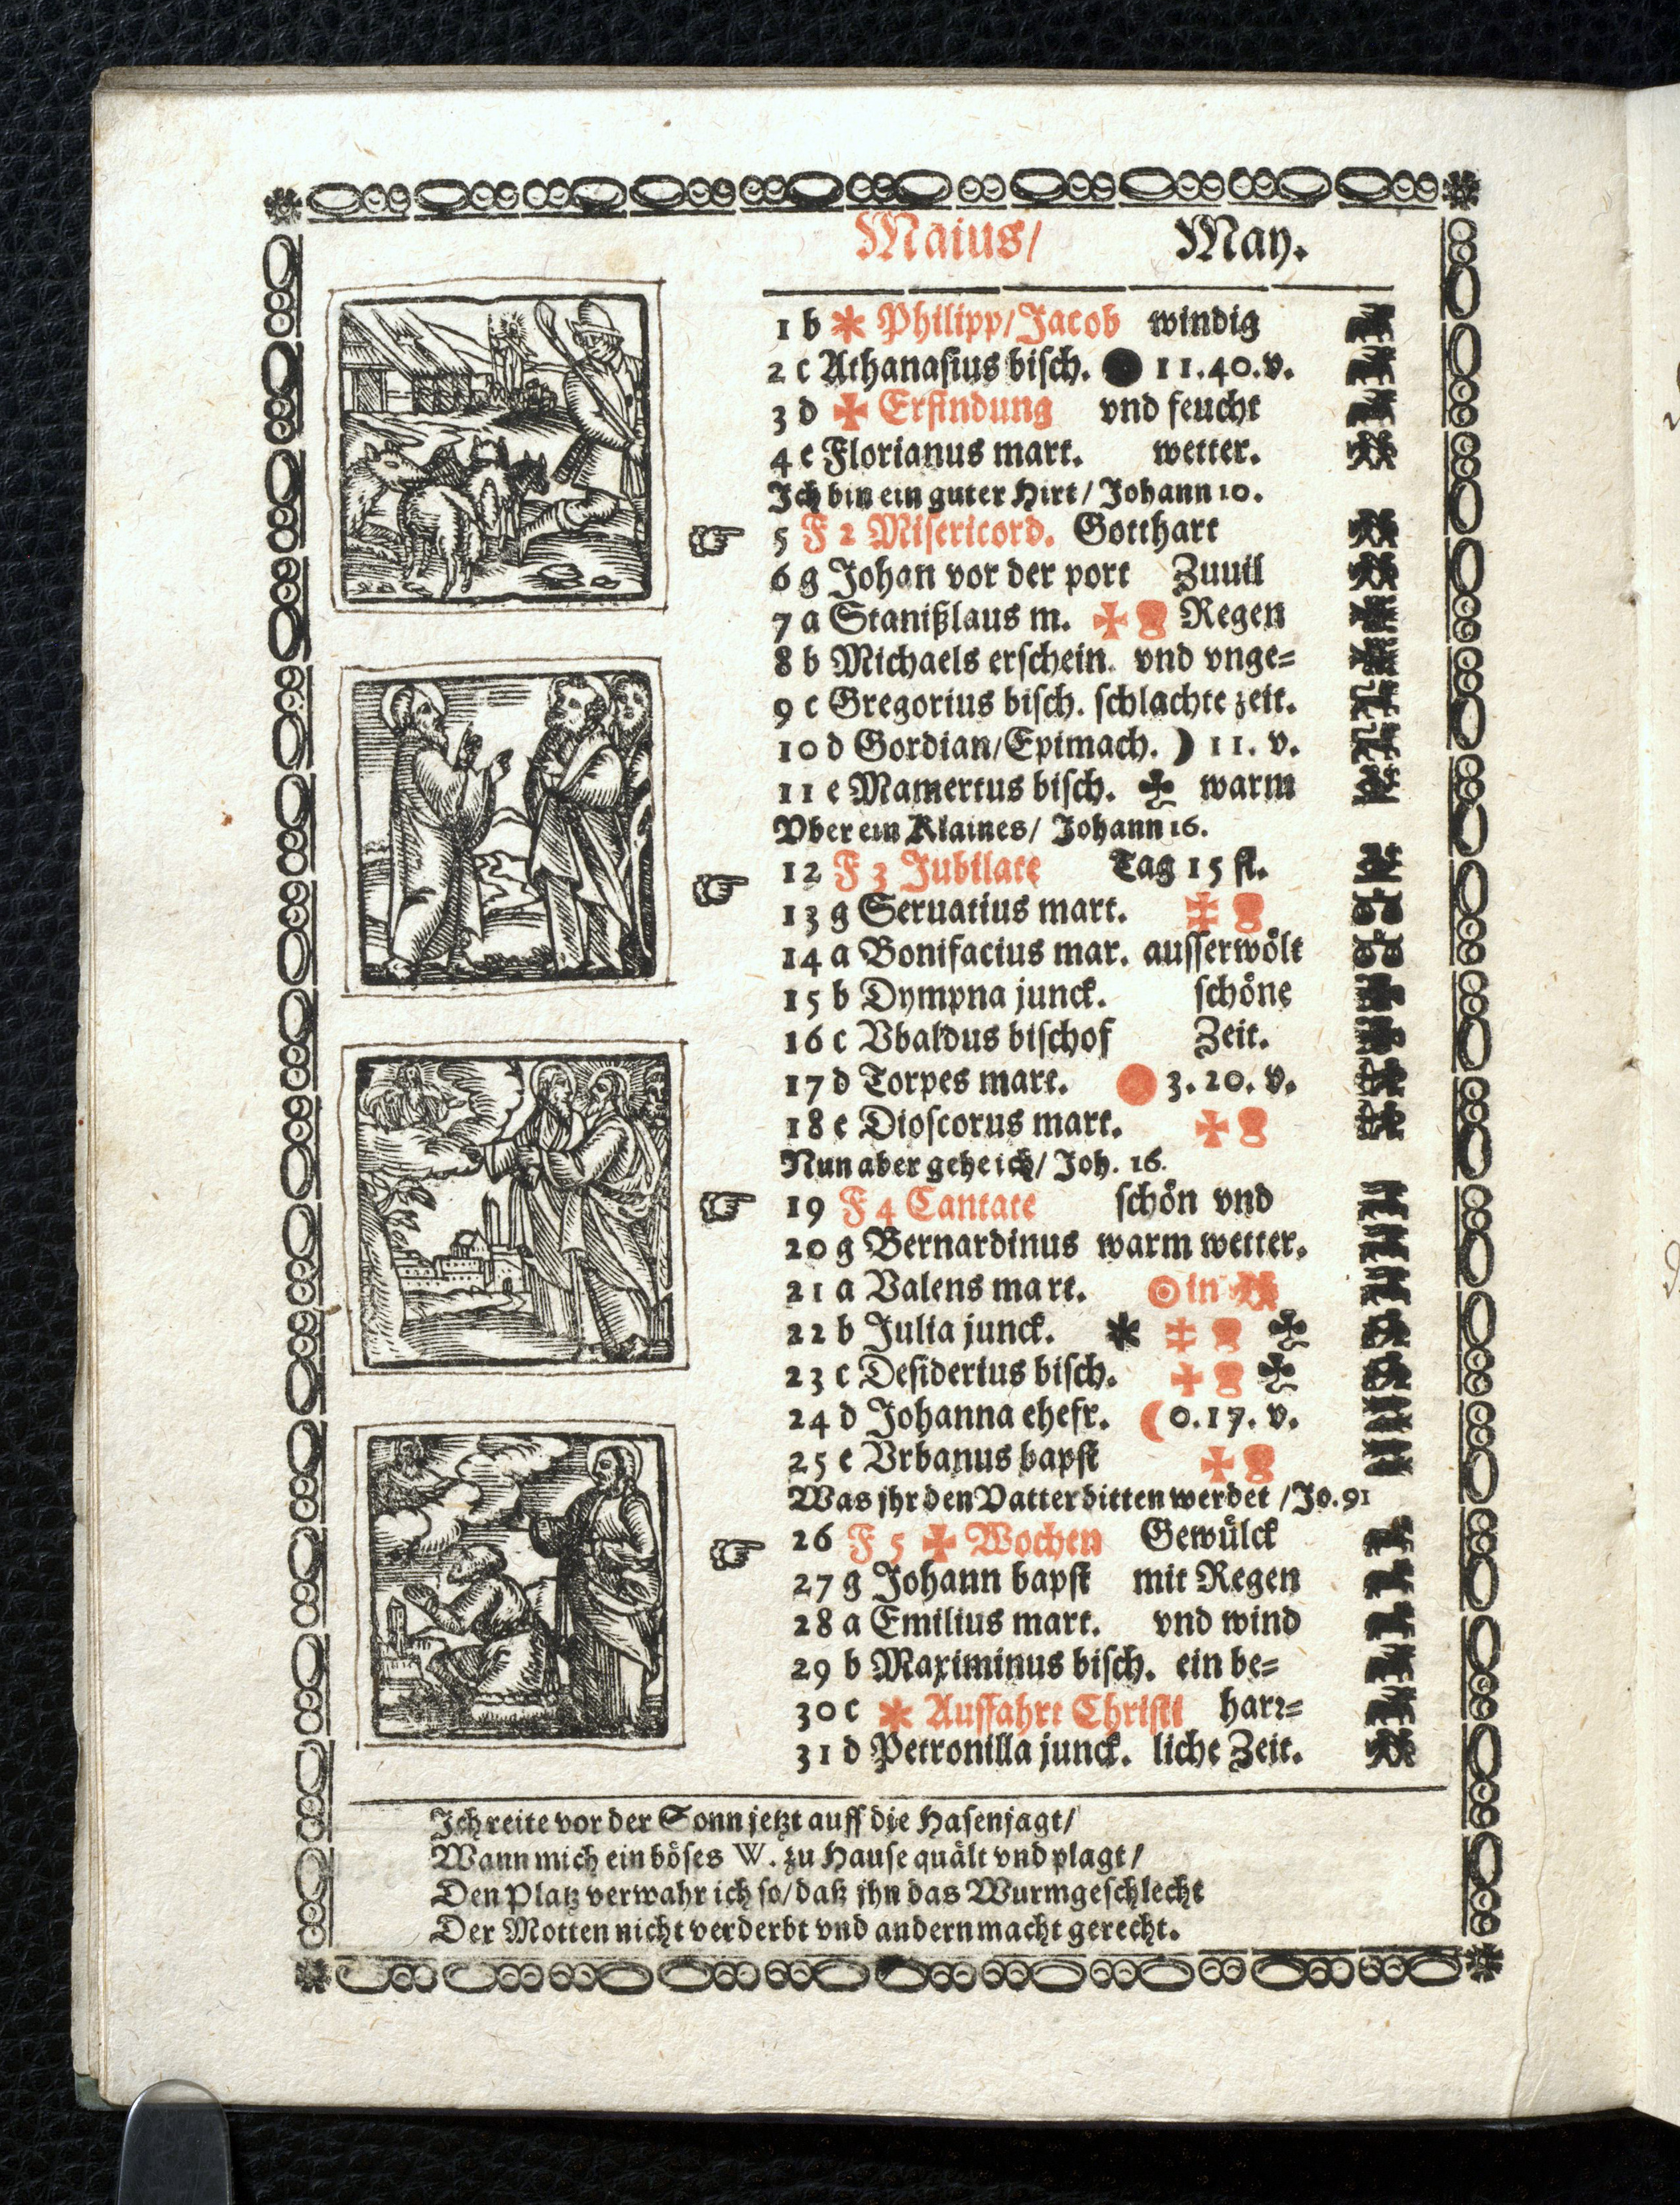 Maius/ May.
1 b Philipp/Jacob windig
2 c Athanasius bisch. 11.40.v.
3 d ✠ Erfindung vnd feucht
4 e Florianus mart. wetter.
Ich bin ein guter Hirt/ Johann 10.
5 F 2 Misericord. Gotthart
6 g Johan vor der port Zuuil
7 a Stanißlaus m. Regen
8 b Michaels erschein. vnd vnge=
9 c Gregorius bisch. schlachte zeit.
10 d Gordian/Epimach. ☽ 11. v.
11 e Mamertus bisch. warm
Vber ein Klaines/ Johann 16.
12 F 3 Jubilate Tag 15 st.
13 g Seruatius mart.
14 a Bonifacius mar. ausserwölt
15 b Dympna junck. schöne
16 c Vbaldus bischof Zeit.
17 d Torpes mart. 3. 20. v.
18 e Dioscorus mart.
Nun aber gehe ich/ Joh. 16.
19 F 4 Cantate schön vnd
20 g Bernardinus warm wetter.
21 a Valens mart. ☉ in
22 b Julia junck.
23 c Desiderius bisch.
24 d Johanna ehefr. ☾ 0.17. v.
25 e Vrbanus bapst
Was jhr den Vatter bitten werdet /Jo. 91
26 F 5 ✠ Wochen Gewülck
27 g Johann bapst mit Regen
28 a Emilius mart. vnd wind
29 b Maximinus bisch. ein be=
30 c Auffahrt Christi harr=
31 d Petronilla junck. liche Zeit.
Ich reite vor der Sonn jetzt auff die Hasenjagt/
Wann mich ein böses W. zu Hause quält vnd plagt/
Den Platz verwahr ich so/ daß jhn das Wurmgeschlecht
Der Motten nicht verderbt vnd andern macht gerecht.